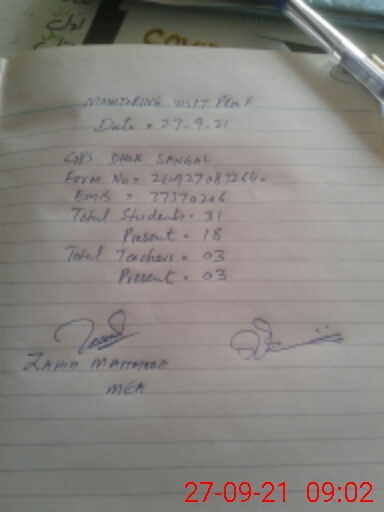 MONITORING VISIT PROOF
Date = 27-9-21
GPS DHOK SANGAL
Form No =
EMIS = 37370206
Total Students = 31
Present = 18
Total Teachers = 03
Present = 03
ZAHID MAHMOOD
MEA
27-09-21 09:02